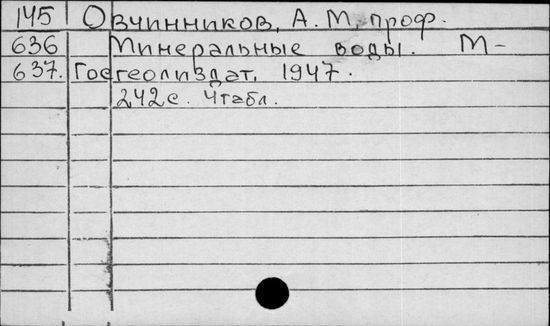 145 Овчинников, А. М. проф.
636 Минеральные воды. М-
637. Госгеолиздат, 1947.
242с. 4табл.